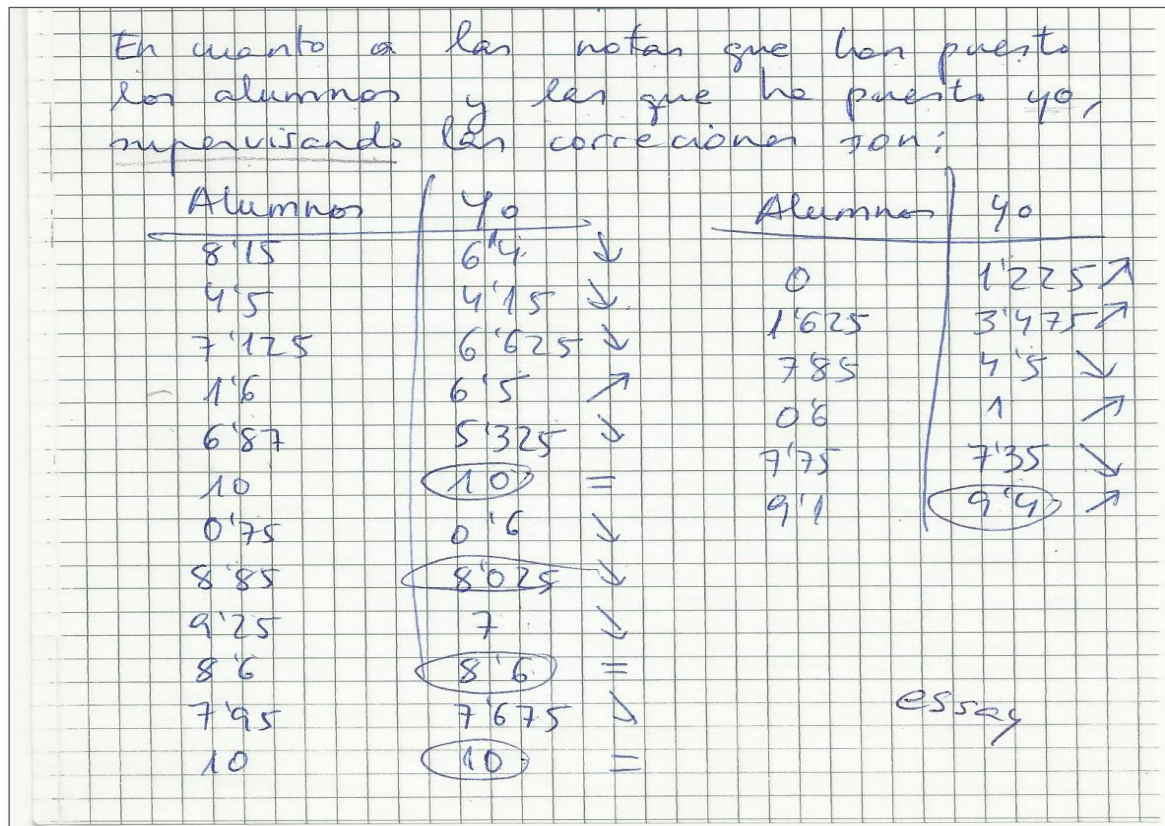 En cuanto a las notas que han puesto
los alumnos y las que he puesto yo,
supervisando las correciones son:
Alumnos Yo
8'15 6'4 ↓
4'5 4'15 ↓
7'125 6'625 ↓
1'6 6'5 ↗
6'87 5'325 ↓
10 10 =
0'75 0'6 ↓
8'85 8'025 ↓
9'25 7 ↓
8'6 8'6 =
7'95 7'675 ↓
10 10 =
Alumnos Yo
0 1'225 ↗
1'625 3'475 ↗
7'85 4'5 ↘
0'6 1 ↗
7'75 7'35 ↘
9'1 9'4 ↗
essay